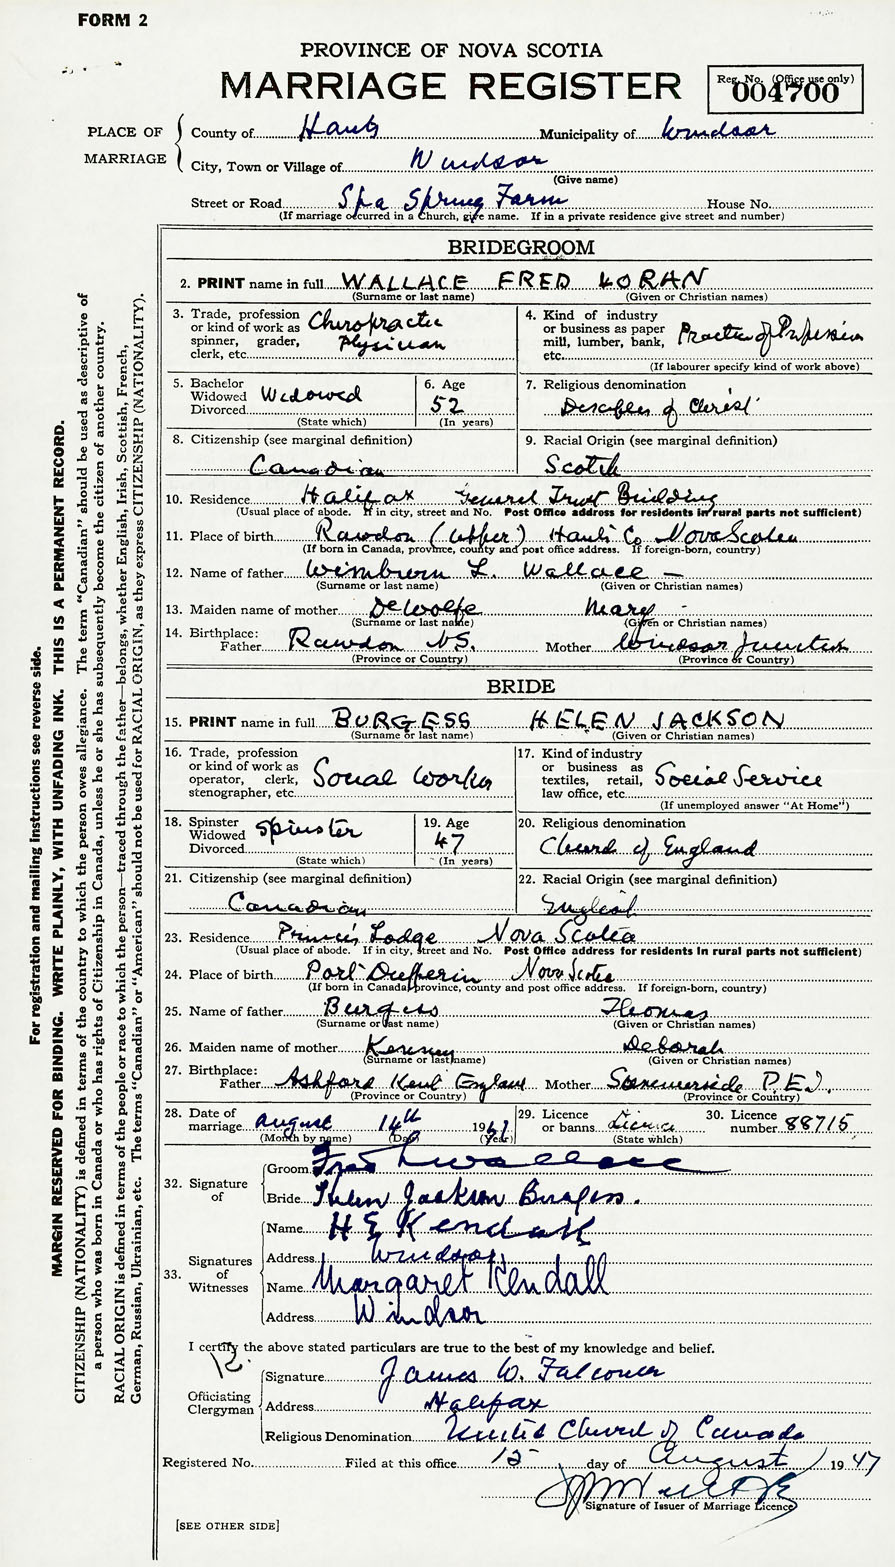 FORM 2
PROVINCE OF NOVA SCOTIA
MARRIAGE REGISTER
Reg. No. (Office use only)
004700
PLACE OF MARRIAGE
County of Hants Municipality of Windsor
City, Town or Village of Windsor
(Give name)
Street or Road Spa Spring Farm House No.
(If marriage occurred in a Church, give name. If in a private residence give street and number)
BRIDEGROOM
2. PRINT name in full WALLACE FRED LORAN
(Surname or last name) (Given or Christian names)
3. Trade, profession or kind of work as spinner, grader, clerk, etc. Chiropractic Physician
4. Kind of industry or business as paper mill, lumber, bank, etc. Practice of Profession
(If labourer specify kind of work above)
5. Bachelor Widowed Divorced Widowed
(State which)
6. Age 52
(In years)
7. Religious denomination
Disciples of Christ
8. Citizenship (see marginal definition)
Canadian
9. Racial Origin (see marginal definition)
Scotch
10. Residence Halifax General Trust Building
(Usual place of abode. If in city, street and No. Post Office address for residents in rural parts not sufficient)
11. Place of birth Rawdon (Upper) Hants Co Nova Scotia
(If born in Canada, province, county and post office address. If foreign-born, country)
12. Name of father Wimburn L. Wallace —
(Surname or last name) (Given or Christian names)
13. Maiden name of mother DeWolfe Mary -
(Surname or last name) (Given or Christian names)
14. Birthplace:
Father Rawdon NS. Mother Windsor Junction
(Province or Country) (Province or Country)
BRIDE
15. PRINT name in full BURGESS HELEN JACKSON
(Surname or last name) (Given or Christian names)
16. Trade, profession or kind of work as operator, clerk, stenographer, etc. Social Worker
17. Kind of industry or business as textiles, retail, law office, etc. Social Service
(If unemployed answer "At Home")
18. Spinster Widowed Divorced Spinster
(State which)
19. Age 47
(In years)
20. Religious denomination
Church of England
21. Citizenship (see marginal definition)
Canadian
22. Racial Origin (see marginal definition)
English
23. Residence Princes Lodge Nova Scotia
(Usual place of abode. If in city, street and No. Post Office address for residents in rural parts not sufficient)
24. Place of birth Port Dufferin Nova Scotia
(If born in Canada, province, county and post office address. If foreign-born, country)
25. Name of father Burgess Thomas
(Surname or last name) (Given or Christian names)
26. Maiden name of mother Deborah
(Surname or last name) (Given or Christian names)
27. Birthplace:
Father Ashford Kent England Mother Summerside P.E.I.
(Province or Country) (Province or Country)
28. Date of marriage August 14th 1947
(Month by name) (Day) (Year)
29. Licence or banns Licence
(State which)
30. Licence number 88715
32. Signature of
Groom Fred L Wallace
Bride Helen Jackson Burgess.
33. Signatures of Witnesses
Name H E Kendall
Address Windsor
Name Margaret Kendall
Address Windsor
I certify the above stated particulars are true to the best of my knowledge and belief.
Officiating Clergyman
Signature James W. Falconer
Address Halifax
Religious Denomination United Church of Canada
Registered No. Filed at this office 15 day of August 1947
Signature of Issuer of Marriage Licence
[SEE OTHER SIDE]
For registration and mailing instructions see reverse side.
MARGIN RESERVED FOR BINDING. WRITE PLAINLY, WITH UNFADING INK. THIS IS A PERMANENT RECORD.
CITIZENSHIP (NATIONALITY) is defined in terms of the country to which the person owes allegiance. The term "Canadian" should be used as descriptive of
a person who was born in Canada or who has rights of Citizenship in Canada, unless he or she has subsequently become the citizen of another country.
RACIAL ORIGIN is defined in terms of the people or race to which the person—traced through the father—belongs, whether English, Irish, Scottish, French,
German, Russian, Ukrainian, etc. The terms "Canadian" or "American" should not be used for RACIAL ORIGIN, as they express CITIZENSHIP (NATIONALITY).